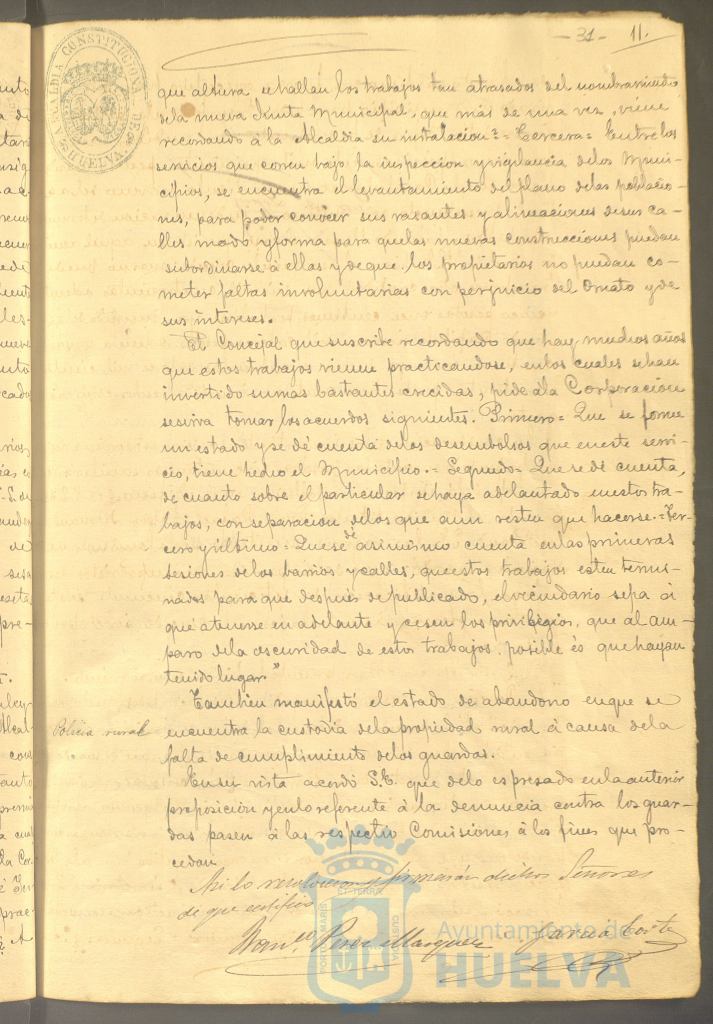 - 31 - 11.
ALCALDIA CONSTITUCIONAL DE HUELVA
que altura se hallan los trabajos tan atrasados del nombramiento
de la nueva Junta Municipal, que más de una vez, viene
recordando á la Alcaldia su instalacion? = Tercera = Entre los
servicios que corren bajo la inspeccion y vigilancia de los Muni-
cipios, se encuentra el levantamiento del plano de las poblacio-
nes, para poder conocer sus rasantes y alineaciones de sus ca-
lles modo y forma para que las nuevas construcciones puedan
subordinarse á ellas y de que los propietarios no puedan co-
meter faltas involuntarias con perjuicio del Ornato y de
sus intereses.
El Concejal que suscribe recordando que hay muchos años
que estos trabajos vienen practicandose, en los cuales se han
invertido sumas bastantes crecidas, pide á la Corporacion
se sirva tomar los acuerdos siguientes. Primero = Que se forme
un estado y se dé cuenta de los desembolsos que en este servi-
cio, tiene hecho el Municipio. = Segundo = Que se dé cuenta,
de cuanto sobre el particular se haya adelantado en estos tra-
bajos, con separacion de los que aun resten que hacerse. = Ter-
cero y ultimo = Que se dé asimismo cuenta en las primeras
sesiones de los barrios y calles, que estos trabajos esten termi-
nados para que después de publicado, el vecindario sepa á
qué atenerse en adelante y cesen los privilegios, que al am-
paro de la oscuridad de estos trabajos posible es que hayan
tenido lugar."
Tambien manifestó el estado de abandono en que se
Policia rural
encuentra la custodia de la propiedad rural á causa de la
falta de cumplimiento de los guardas.
En su vista acordó S.E. que de lo espresado en la anterior
preposicion y en lo referente á la denuncia contra los guar-
das pasen á las respectiv Comisiones á los fines que pro-
cedan
Asi lo resolvieron y firmarán dichos Señores
de que certifico
Man.<sup>l</sup> Perez Marquez Garcia Cortes
PORTUS MARIS ET TERRAE CUSTODIA
Ayuntamiento de
HUELVA